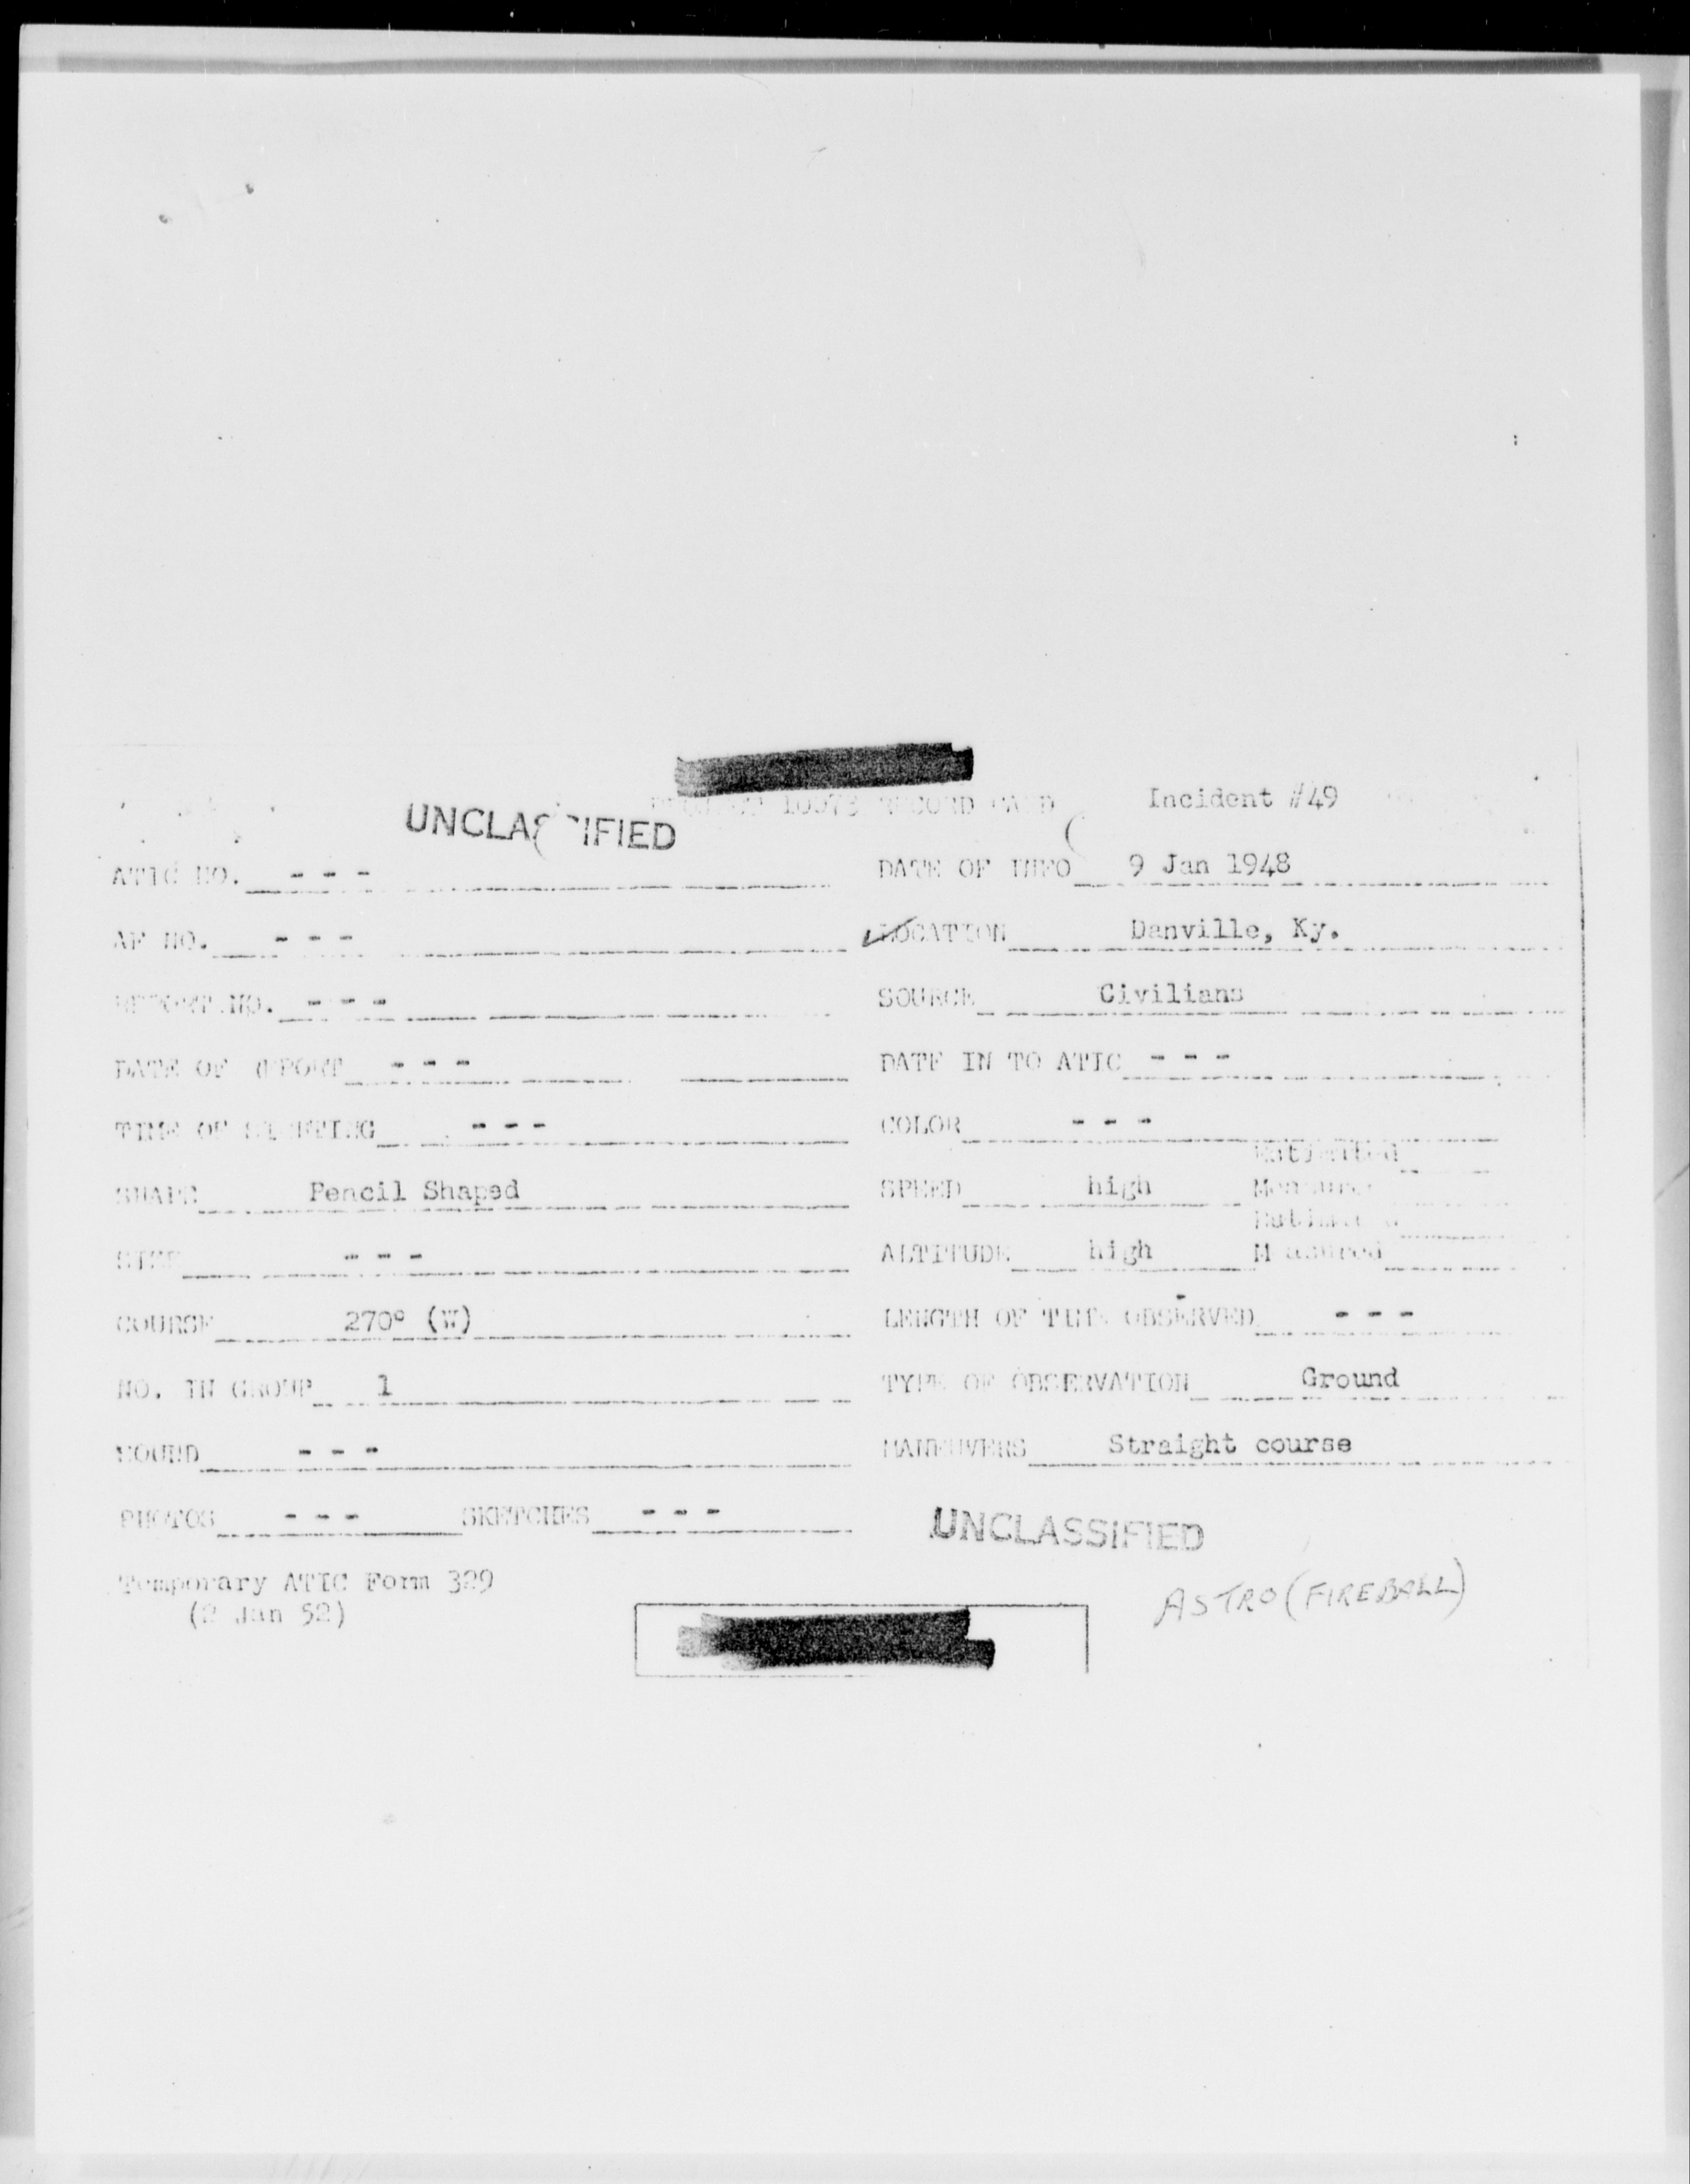 UNCLASSIFIED
RECORD CARD Incident #49
ATIC NO. - - - DATE OF INFO 9 Jan 1948
AF NO. - - - LOCATION Danville, Ky.
REPORT NO. - - - SOURCE Civilians
DATE OF REPORT - - - DATE IN TO ATIC - - -
TIME OF SIGHTING - - - COLOR - - -
Estimated
SHAPE Pencil Shaped SPEED high Measured
Estimated
SIZE - - - ALTITUDE high Measured
COURSE 270° (W) LENGTH OF TIME OBSERVED - - -
NO. IN GROUP 1 TYPE OF OBSERVATION Ground
SOUND - - - MANEUVERS Straight course
PHOTOS - - - SKETCHES - - -
UNCLASSIFIED
Temporary ATIC Form 329
(2 Jan 52)
ASTRO (FIREBALL)